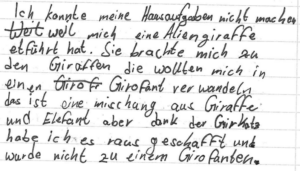 Ich konnte meine Hausaufgaben nicht machen
Weil weil mich eine Aliengiraffe
etführt hat. Sie brachte mich zu
den Giraffen die wollten mich in
einen Girofr Girofant verwandeln
das ist eine misschung aus Giraffe
und Elefant aber dank der
habe ich es raus geschafft und
wurde nicht zu einem Girofanten.